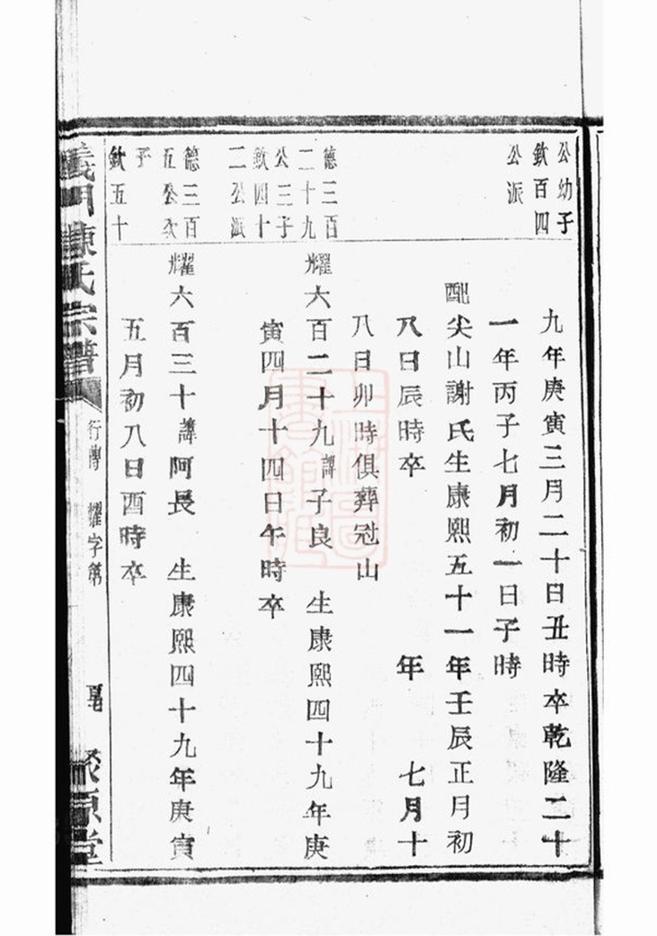 公幼子
欽百四
公派
九年庚寅三月二十日丑時卒乾隆二十
一年丙子七月初一日子時
配尖山謝氏生康熙五十一年壬辰正月初
八日辰時卒　　年　　七月十
八日卯時俱葬冠山
德三百
二十九
公三子
欽四十
二公派
耀六百二十九諱子良　生康熙四十九年庚
寅四月十四日午時卒
德三百
五公次
子
欽五十
耀六百三十諱阿長　生康熙四十九年庚寅
五月初八日酉時卒
義門陳氏宗譜
行傳　耀字號
聚原堂